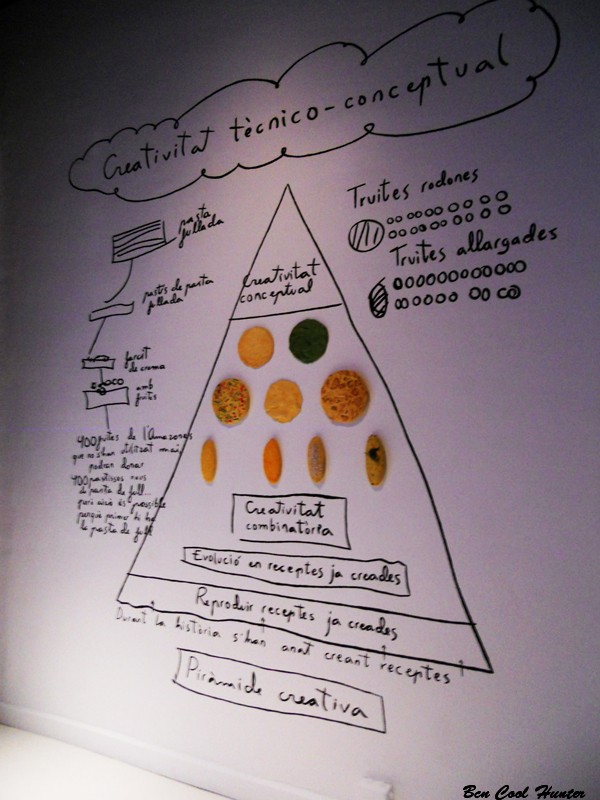 Creativitat tècnico-conceptual
Truites rodones
Truites allargades
pasta
fullada
pastís de pasta
fullada
farcit
de crema
amb
fruites
400 fruites de l'Amazones
que no s'han utilitzat mai
podran donar
400 pastissos nous
de pasta de full...
però això és possible
perquè primer hi ha
la pasta de full
Creativitat
conceptual
Creativitat
combinatòria
Evolució en receptes ja creades
Reproduir receptes ja creades
Durant la història s'han anat creant receptes
Piràmide creativa
Ben Cool Hunter